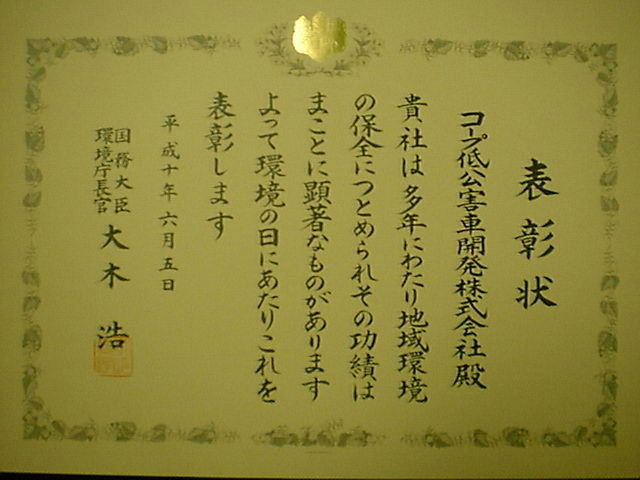 表彰状
コープ低公害車開発株式会社殿
貴社は多年にわたり地域環境
の保全につとめられその功績は
まことに顕著なものがあります
よって環境の日にあたりこれを
表彰します
平成十年六月五日
国務大臣
環境庁長官
大木浩